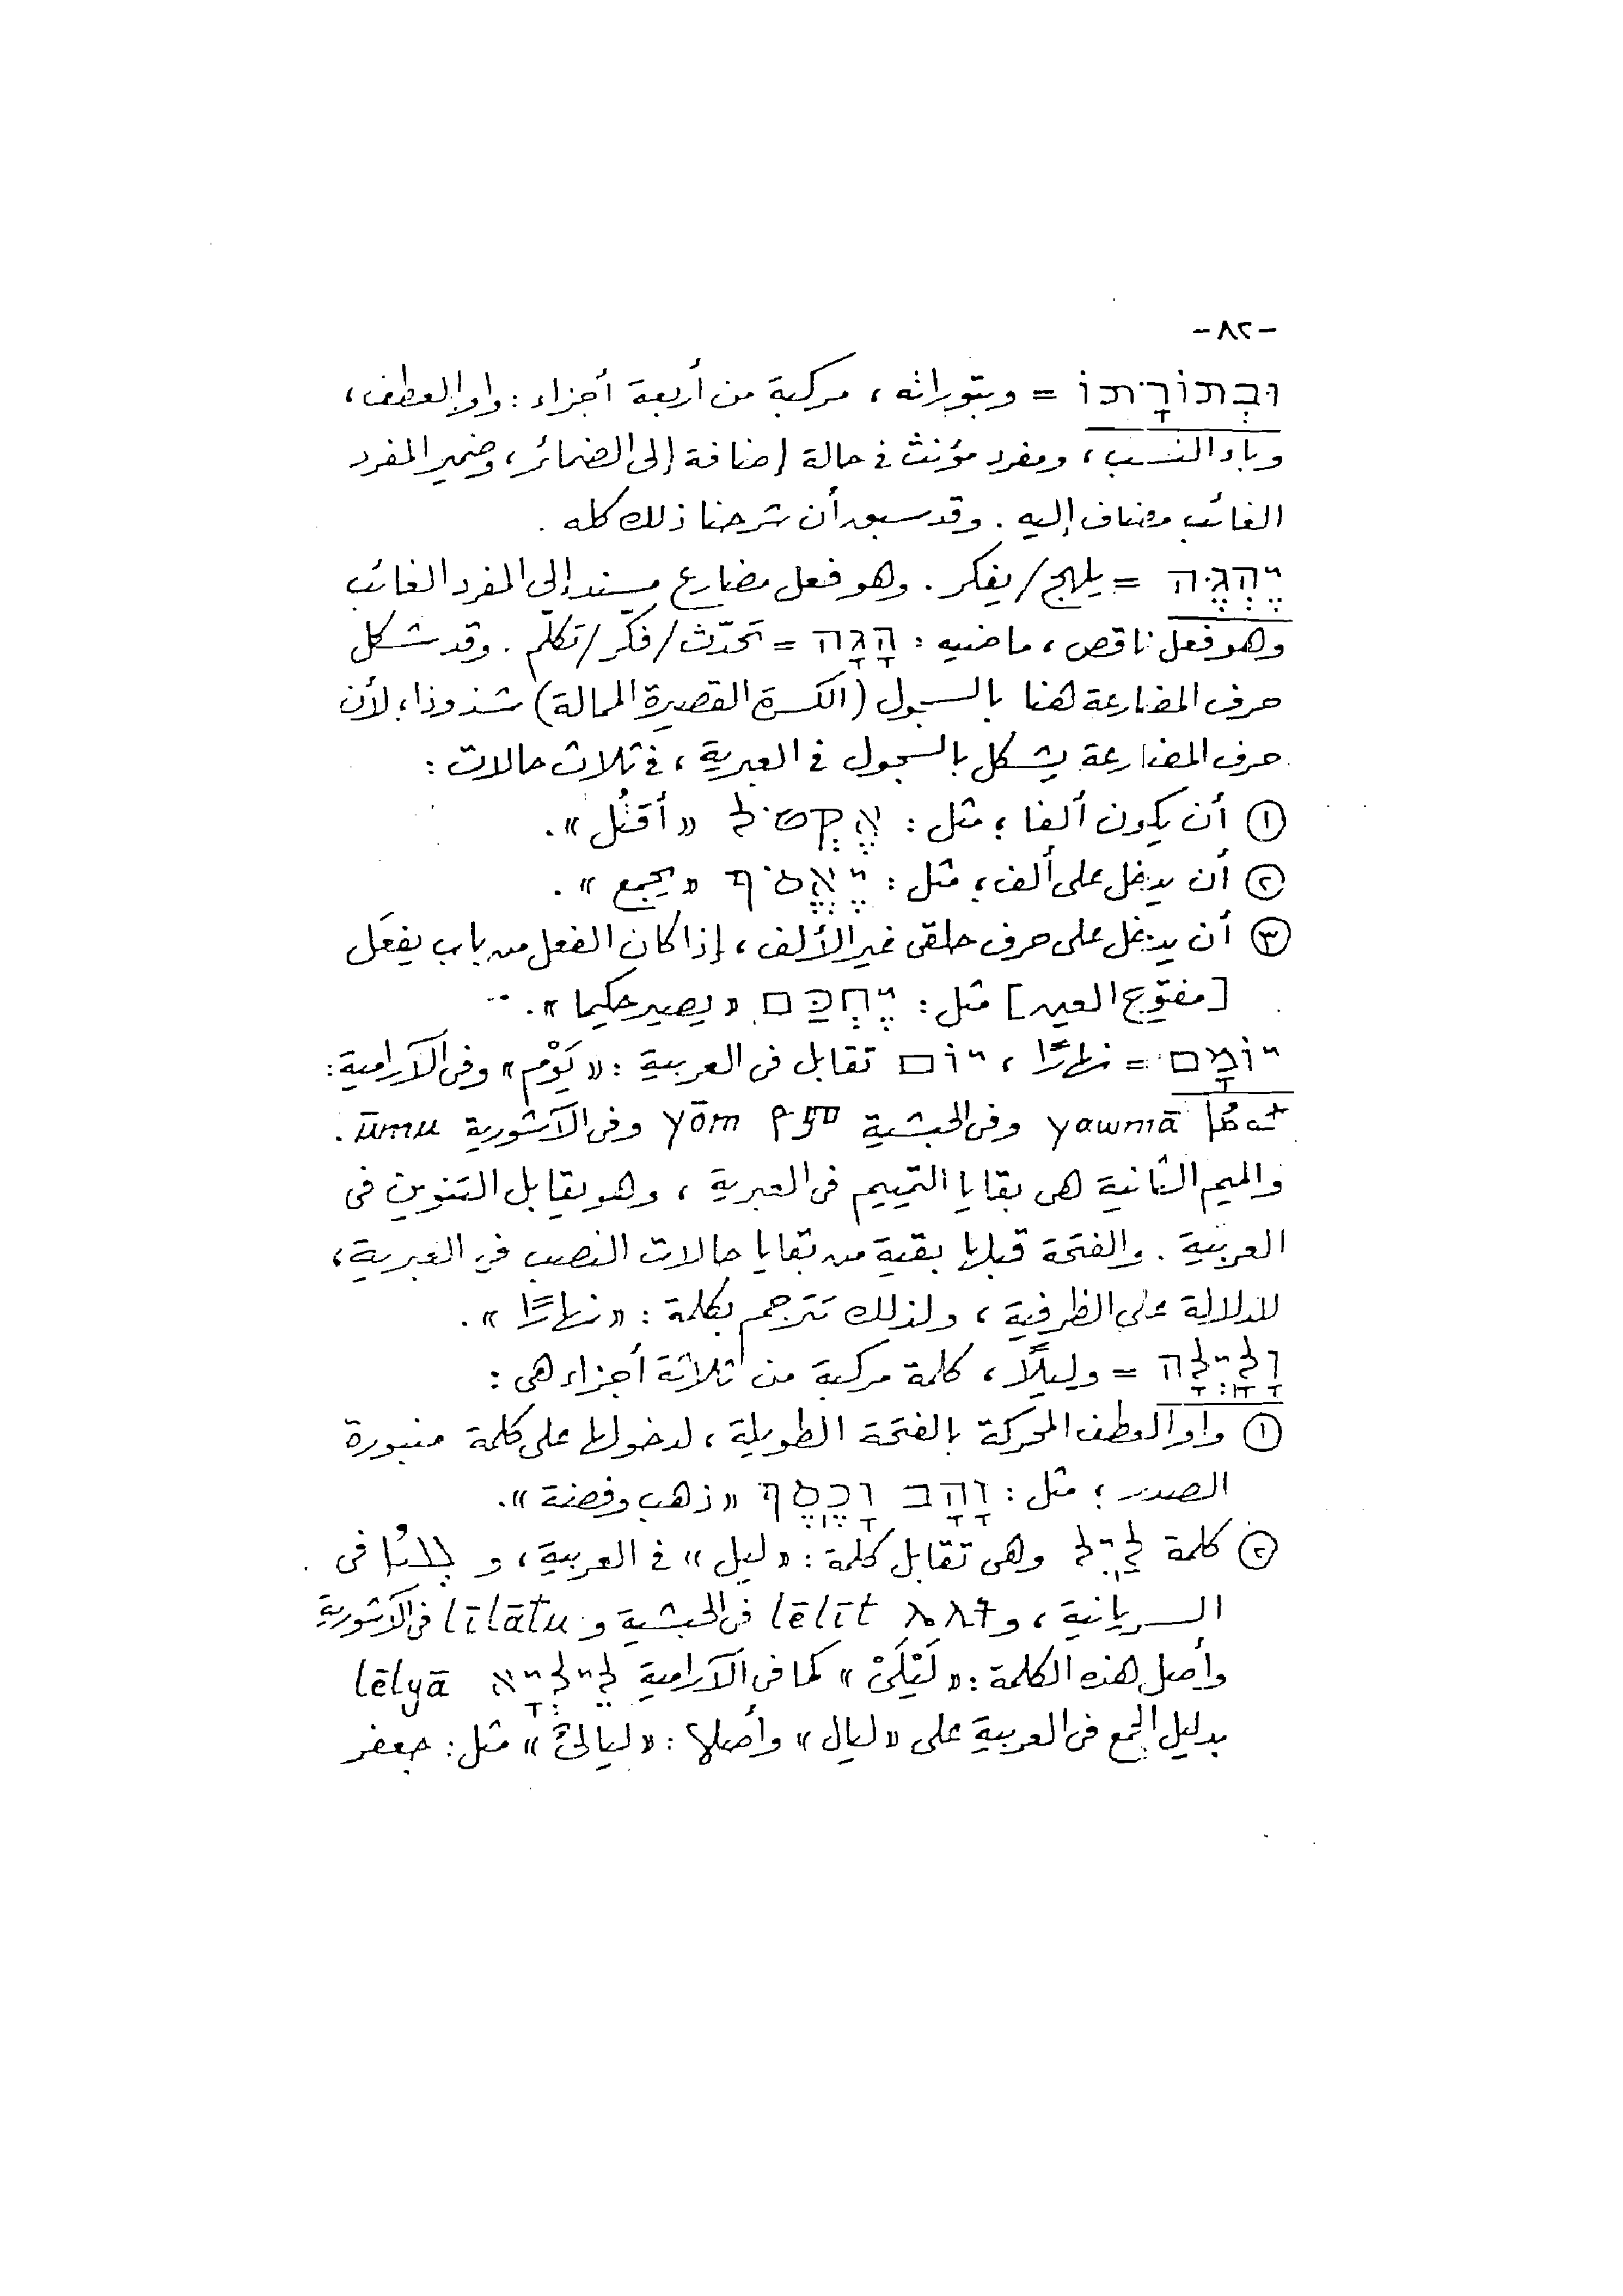 -٨٢-
וּבְתוֹרָתוֹ = وبتوراته ، مركبة من أربعة أجزاء : واو العطف ،
وباء النسب ، ومفرد مؤنث فى حالة إضافة إلى الضمائر ، وضمير المفرد
الغائب مضاف إليه . وقد سبق أن شرحنا ذلك كله .
יֶהְגֶּה = يلهج / يفكر . وهو فعل مضارع مسند إلى المفرد الغائب
وهو فعل ناقص ، ماضيه : הָגָה = تحدّث / فكّر / تكلّم . وقد شكل
حرف المضارعة هنا بالسجول (الكسرة القصيرة الممالة) شذوذا ؛ لأن
حرف المضارعة يشكل بالسجول فى العبرية ، فى ثلاث حالات :
① أن يكون ألفا ؛ مثل : אֶקְטֹל «أقتُل» .
② أن يدخل على ألف ؛ مثل : יֶאֱסֹף «يجمع» .
③ أن يدخل على حرف حلقى غير الألف ، إذا كان الفعل من باب يفعَل
[مفتوح العين] مثل : יֶחְכַּם «يصير حكيما» .
יוֹמָם = نهارًا ، יוֹם تقابل فى العربية : «يَوْم» وفى الآرامية :
ܝܰܘܡܳܐ yawmā وفى الحبشية ዮም yōm وفى الآشورية ūmu .
والميم الثانية هى بقايا التمييم فى العبرية ، وهو يقابل التنوين فى
العربية . والفتحة قبلها بقية من بقايا حالات النصب فى العبرية ،
للدلالة على الظرفية ، ولذلك تترجم بكلمة : «نهارًا» .
וָלָיְלָה = وليلًا ، كلمة مركبة من ثلاثة أجزاء هى :
① واو العطف المحركة بالفتحة الطويلة ، لدخولها على كلمة منبورة
الصدر ؛ مثل : זָהָב וָכֶסֶף «ذهب وفضة» .
② كلمة לַיִל وهى تقابل كلمة : «ليل» فى العربية ، و ܠܠܝܳܐ فى
السريانية ، و ሌሊት lēlīt فى الحبشية و līlātu فى الآشورية
وأصل هذه الكلمة : «لَيْلَىْ» كما فى الآرامية לֵילְיָא lēlyā
بدليل الجمع فى العربية على «ليال» وأصلها : «ليالىٌ» مثل : جعفر